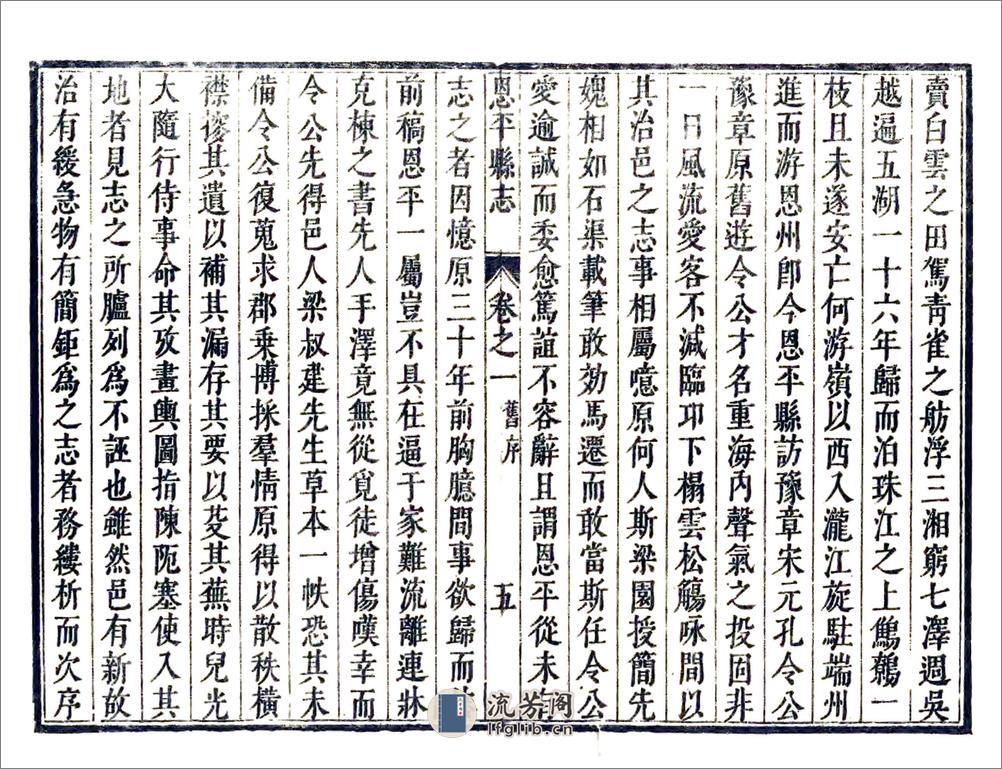 賣白雲之田駕靑雀之舫浮三湘窮七澤週吳
越遍五湖一十六年歸而泊珠江之上鷦鷯一
枝且未遂安亡何游嶺以西入瀧江旋駐端州
進而游恩州卽今恩平縣訪豫章宋元孔令公
豫章原舊遊令公才名重海內聲氣之投固非
一日風流愛客不減臨卭下榻雲松觴咏間以
其治邑之志事相屬噫原何人斯梁園授簡先
媿相如石渠載筆敢効馬遷而敢當斯任令公
愛逾誠而委愈篤誼不容辭且謂恩平從未
志之者因憶原三十年前胸臆間事欲歸而
前稿恩平一屬豈不具在逼于家難流離連牀
充棟之書先人手澤竟無從覓徒增傷嘆幸而
令公先得邑人梁叔建先生草本一帙恐其未
備令公復蒐求郡乗博採羣情原得以散秩橫
襟爲其遺以補其漏存其要以芟其蕪時兒光
大隨行侍事命其攷畫輿圖指陳阨塞使入其
地者見志之所臚列爲不誣也雖然邑有新故
治有緩急物有簡鉅爲之志者務縷析而次序
恩平縣志
卷之一 舊序
五
流芳阁
lfglib.cn